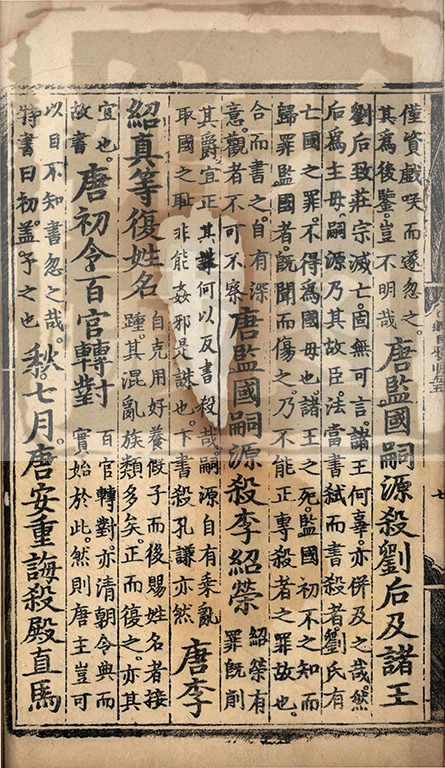 僅資戲咲而遂忽之
其爲後鑒豈不明哉
唐監國嗣源殺劉后及諸王
劉后致莊宗滅亡固無可言諸王何辜亦併及之哉然
后爲主母嗣源乃其故臣法當書弑而書殺者劉氏有
亡國之罪不得爲國母也諸王之死監國初不之知而
歸罪監國者旣聞而傷之乃不能正專殺者之罪故也
合而書之自有深
意觀者不可不察
唐監國嗣源殺李紹榮
紹榮有
罪旣削
其爵宜正其誅何以反書殺哉嗣源自有乘亂
取國之恥非能姦邪是誅也下書殺孔謙亦然
唐李
紹真等復姓名
自克用好養假子而後賜姓名者接
踵其混亂族類多矣正而復之亦其
宜也
故書
唐初令百官轉對
百官轉對亦清朝令典而
實始於此然則唐主豈可
以目不知書忽之哉
特書曰初蓋予之也
秋七月唐安重誨殺殿直馬